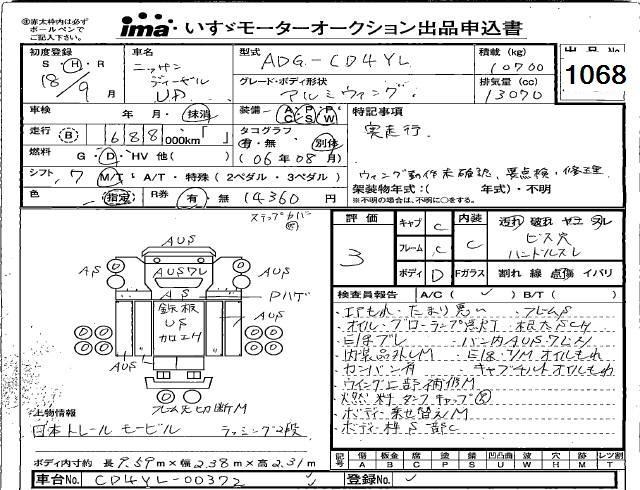 ※赤太枠内は必ずボールペンでご記入下さい。
ima いすゞモーターオークション出品申込書
初度登録 S・H・R 18/9月
車名 ニッサンディーゼル UD
型式 ADG-CD4YL
積載(kg) 10700
出品No. 1068
グレード・ボディ形状 アルミウィング
排気量(cc) 13070
車検 年 月・抹消
装備 AC PS PW
特記事項
走行 B 688 000km「 」
タコグラフ 有・無 別体 (06年08月)
実走行.
燃料 G・D・HV 他( )
ウィング動作未確認、要点検・修理
シフト 7 M/T・A/T・特殊(2ペダル・3ペダル)
架装物年式:( 年式)・不明
※不明の場合は、不明に○をする。
色 指定 R券 有・無 14360円
評価 3
キャブ C
フレーム C
ボディ D
内装 C
Fガラス
汚れ 破れ ヤケ スレ
ビス穴
ハンドルスレ
割れ 線 点傷 イバリ
AUS
AS AUSワレ AUS
AS Pハゲ
鉄板 US 加工H
AUS AUS
フレーム先切断M
検査員報告 A/C( ✓ ) B/T( )
・エアもれ・たまり悪い ・フレームS
・オイル・グローランプ点灯
・内装品外しM ・オイルもれ
・カンバン有 ・キャブチルトオイルもれ
・ウイング上部補修M
・燃料タンクキャップ
・ボディー乗せ替えM
・ボディー枠S 部C
上物情報
日本トレールモービル ラッシング2段
ボディ内寸約 長9.59m×幅2.38m×高2.31m
記号 傷A 板金B 腐C 塗P 錆S 凹凸曲U 波W 穴H 跡M レツ割T
車台No. CD4YL-00372
登録No.